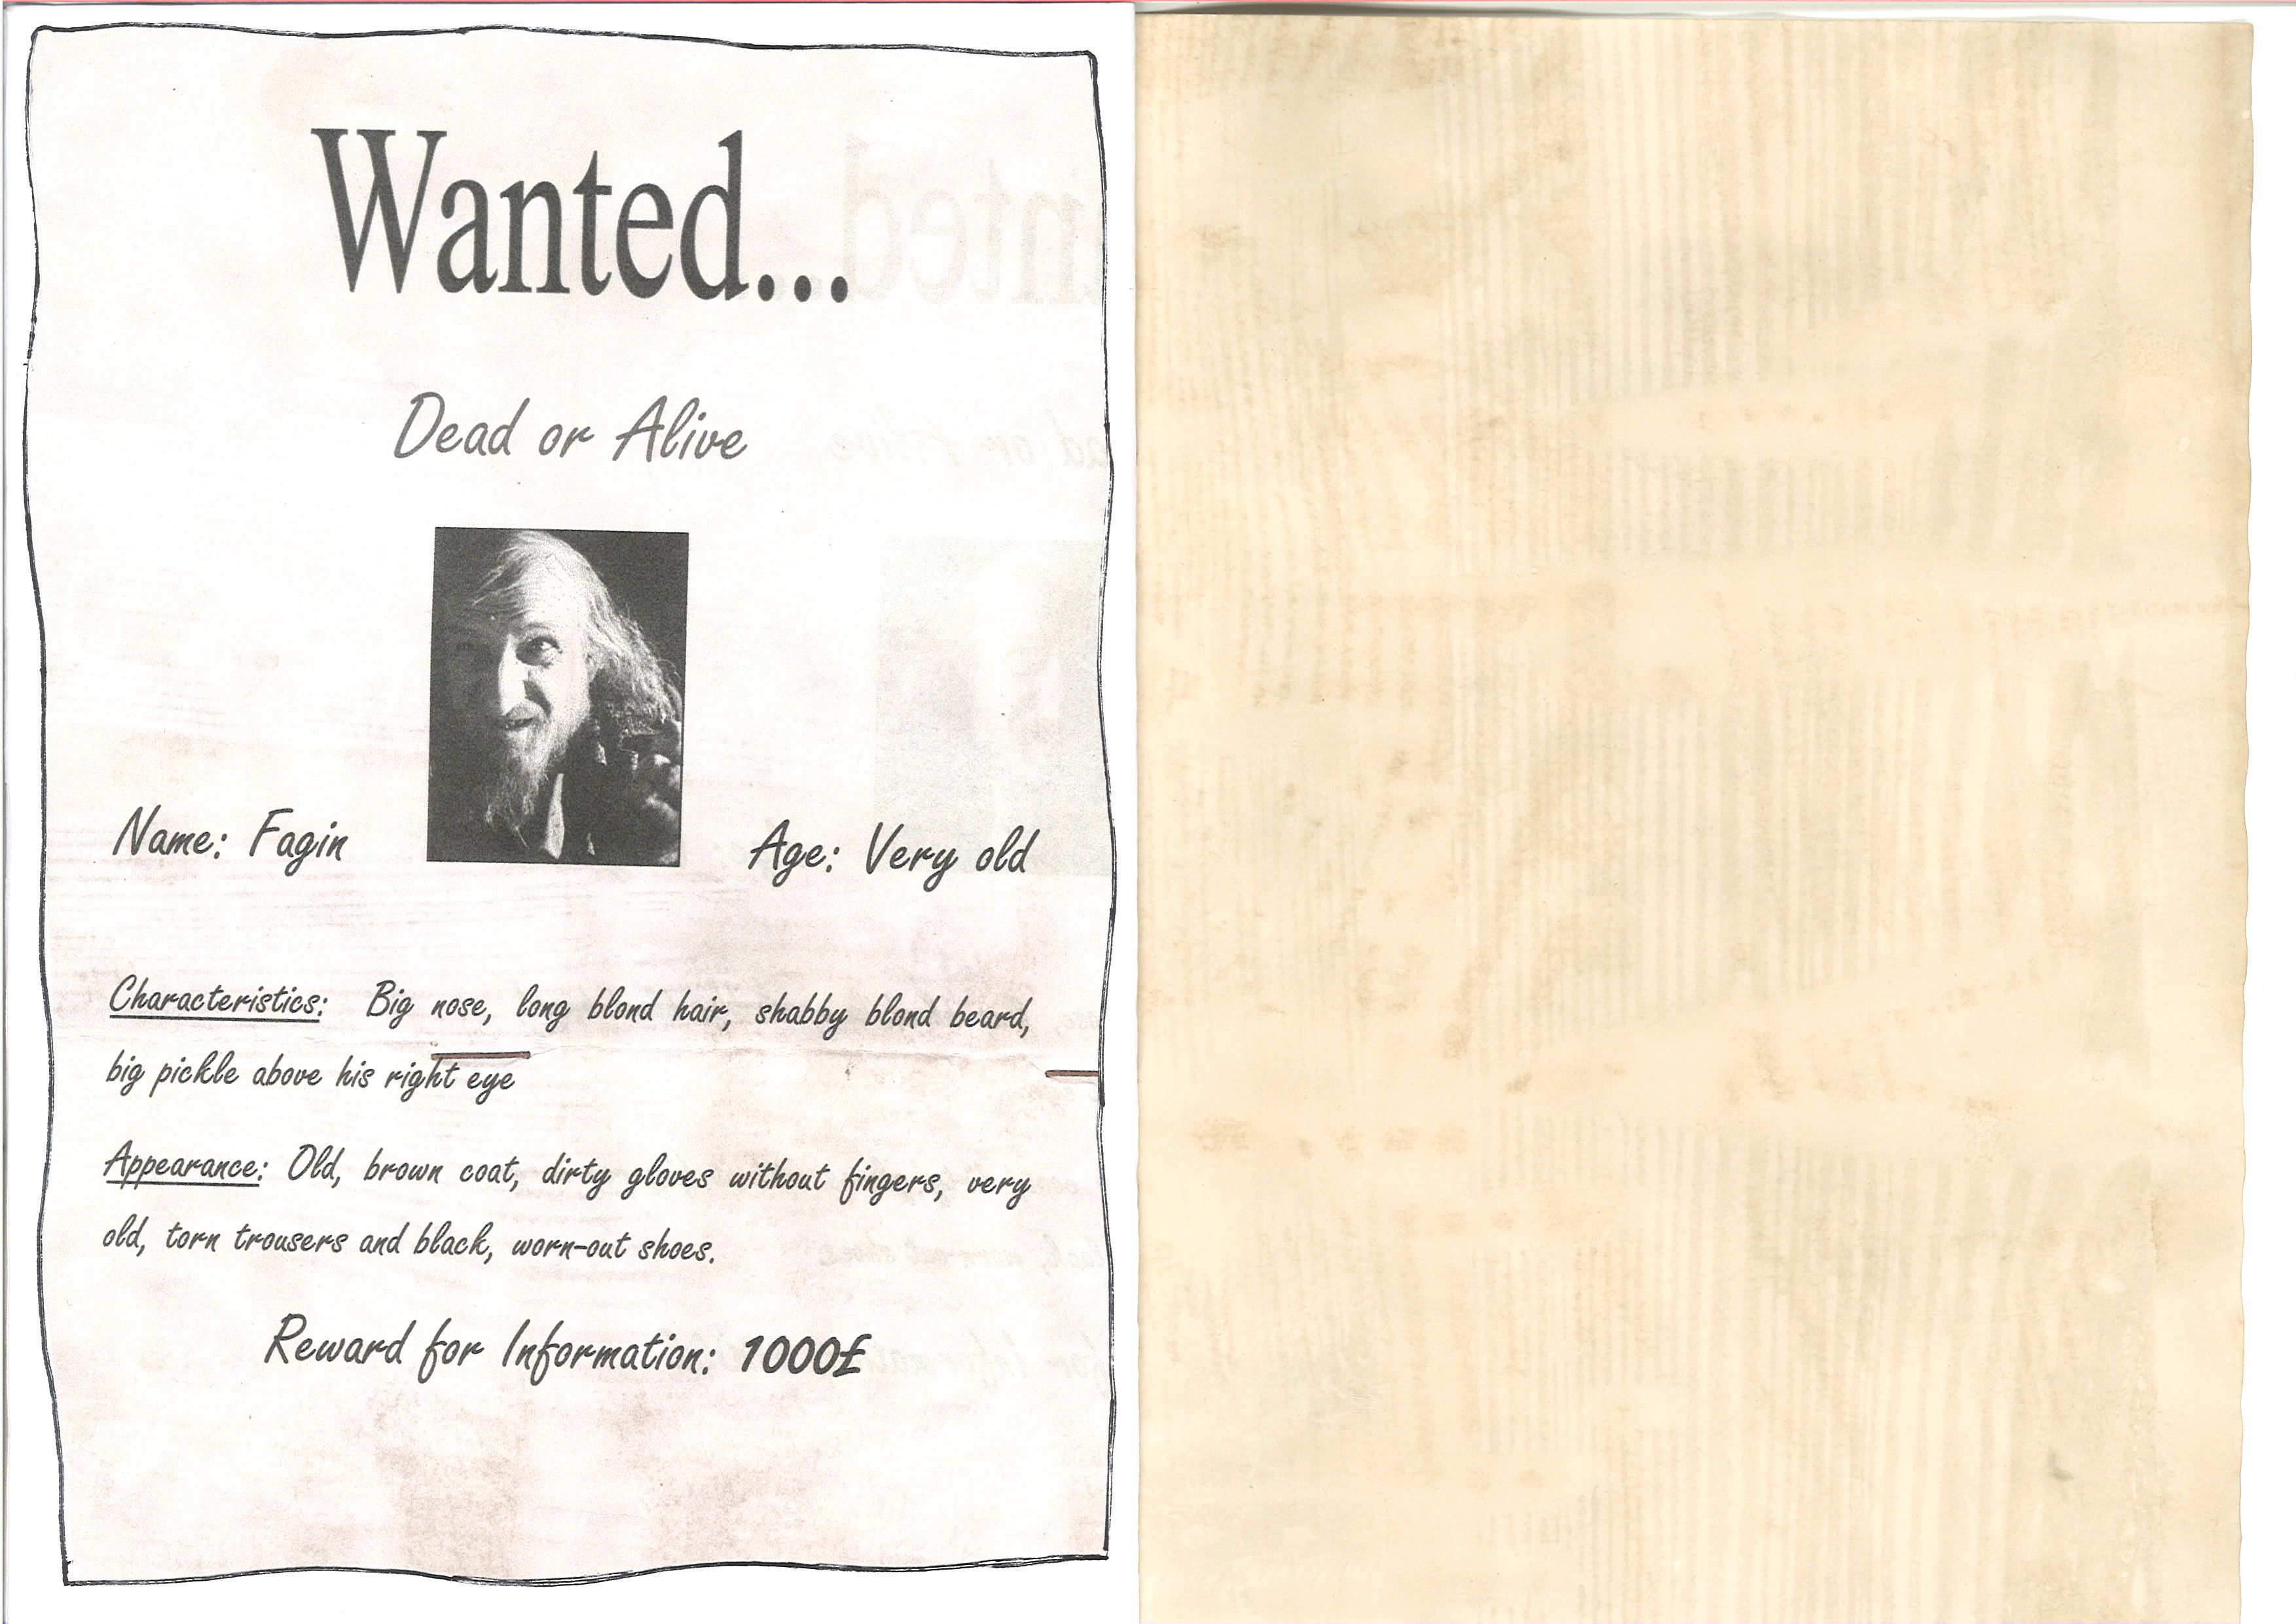 Wanted...
Dead or Alive
Name: Fagin
Age: Very old
Characteristics: Big nose, long blond hair, shabby blond beard,
big pickle above his right eye
Appearance: Old, brown coat, dirty gloves without fingers, very
old, torn trousers and black, worn-out shoes.
Reward for Information: 1000£